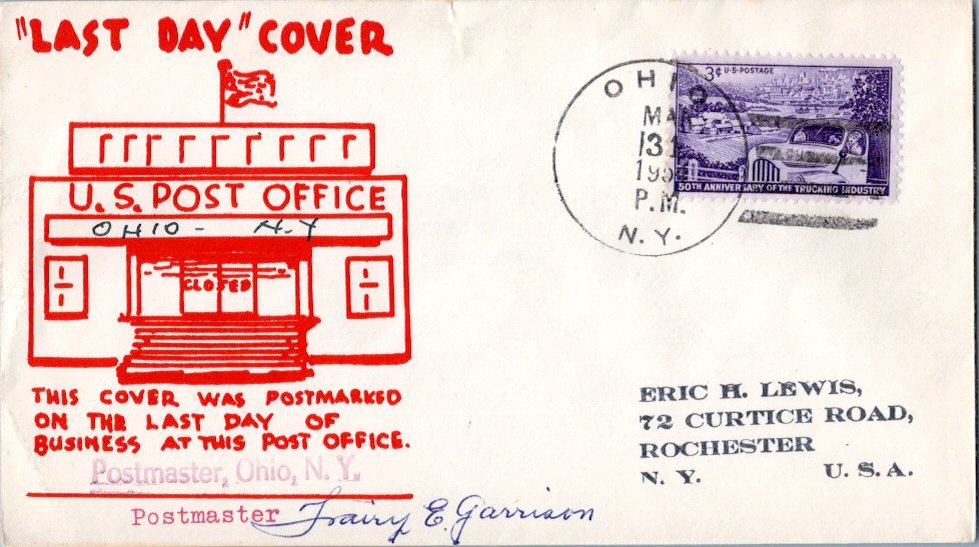 "LAST DAY" COVER
U.S. POST OFFICE
OHIO - N.Y
CLOSED
THIS COVER WAS POSTMARKED
ON THE LAST DAY OF
BUSINESS AT THIS POST OFFICE.
Postmaster, Ohio, N. Y.
Postmaster E. Garrison
OHIO
MAR
31
1954
P.M.
N. Y.
3¢ U·S·POSTAGE
50TH ANNIVERSARY OF THE TRUCKING INDUSTRY
ERIC H. LEWIS,
72 CURTICE ROAD,
ROCHESTER
N. Y. U. S. A.